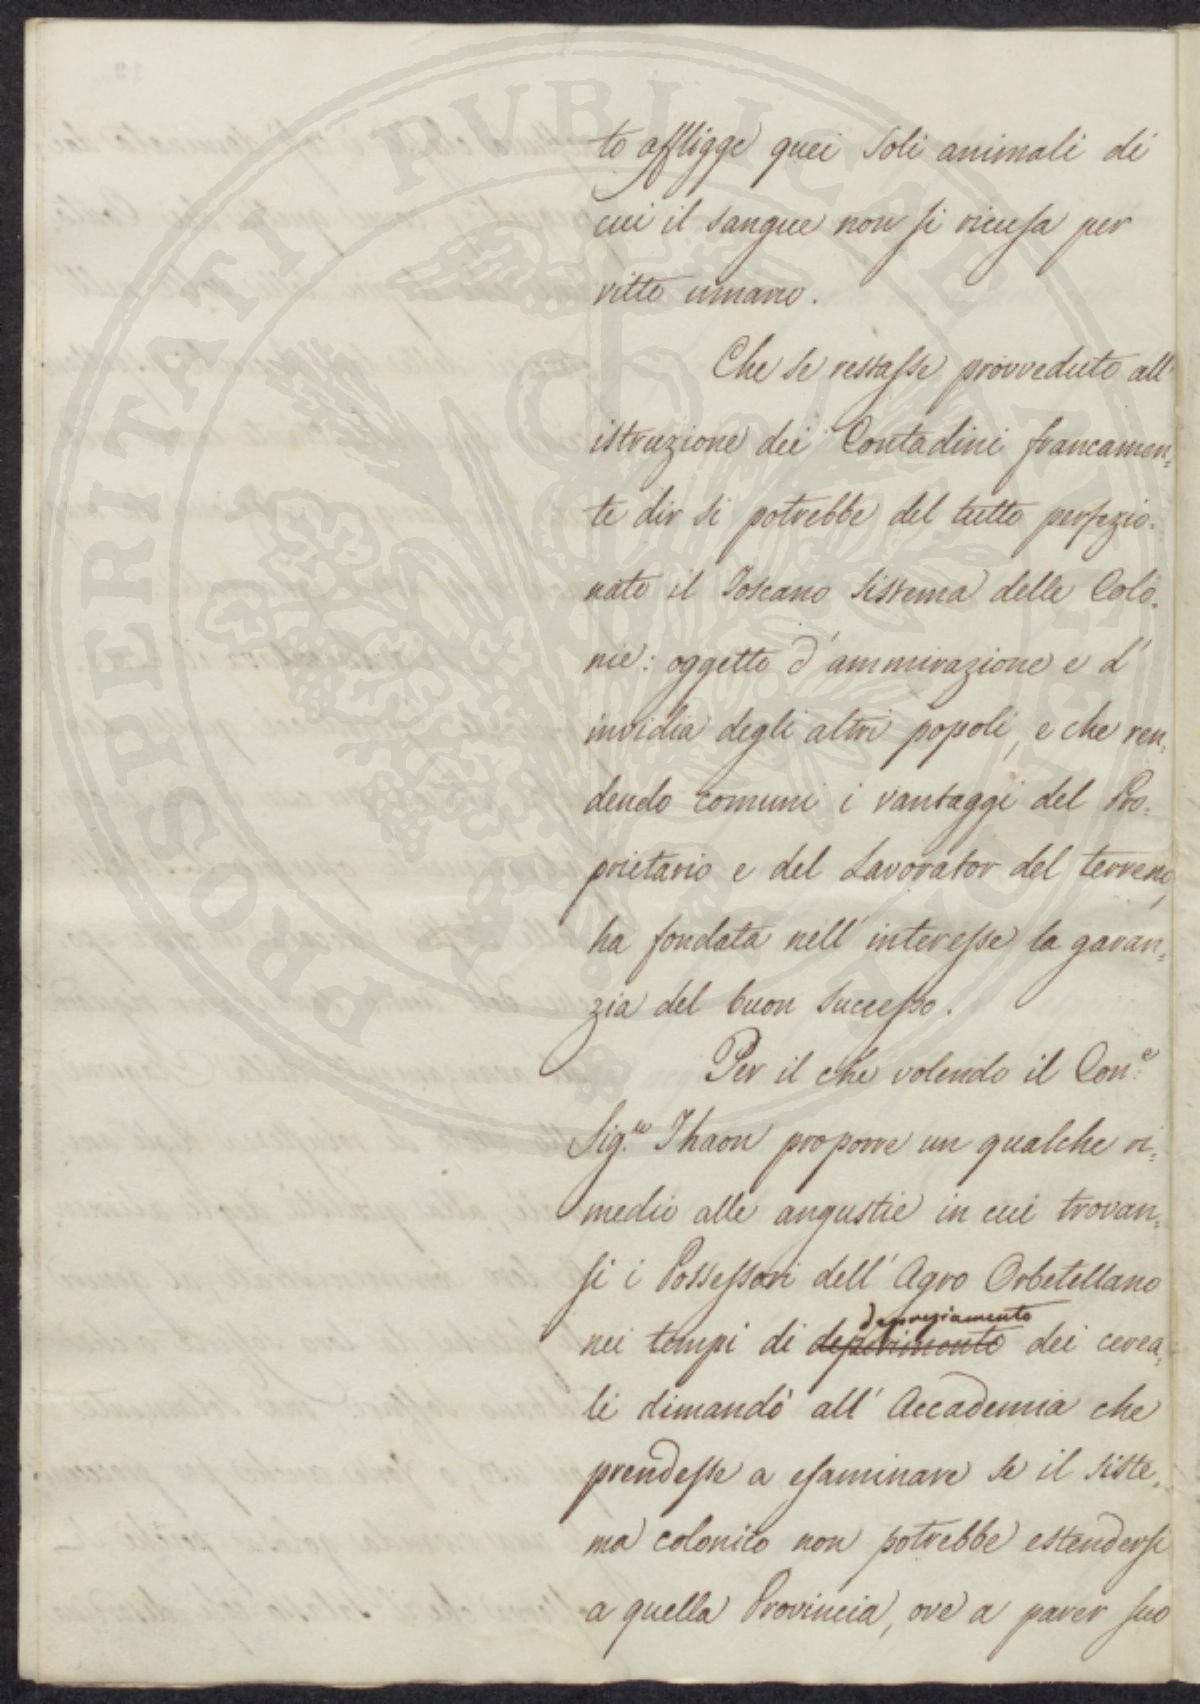 to affligge quei soli animali di
cui il sangue non si ricusa per
vitto umano.
Che se restasse provveduto all'
istruzione dei Contadini francamen=
te dir si potrebbe del tutto perfezio=
nato il Toscano sistema delle Colo=
nie: oggetto d'ammirazione e d'
invidia degli altri popoli, e che ren=
dendo comuni i vantaggi del Pro=
prietario e del Lavorator del terreno,
ha fondata nell'interesse la garan=
zia del buon successo.
Per il che volendo il Con.e
Sig.re Thaon proporre un qualche ri=
medio alle angustie in cui trovan=
si i Possessori dell'Agro Orbetellano
depreziamento
nei tempi di deperimento dei cerea=
li dimandò all'Accademia che
prendesse a esaminare se il siste=
ma colonico non potrebbe estendersi
a quella Provincia, ove a parer suo
PROSPERITATI PUBLICAE AUGENDAE